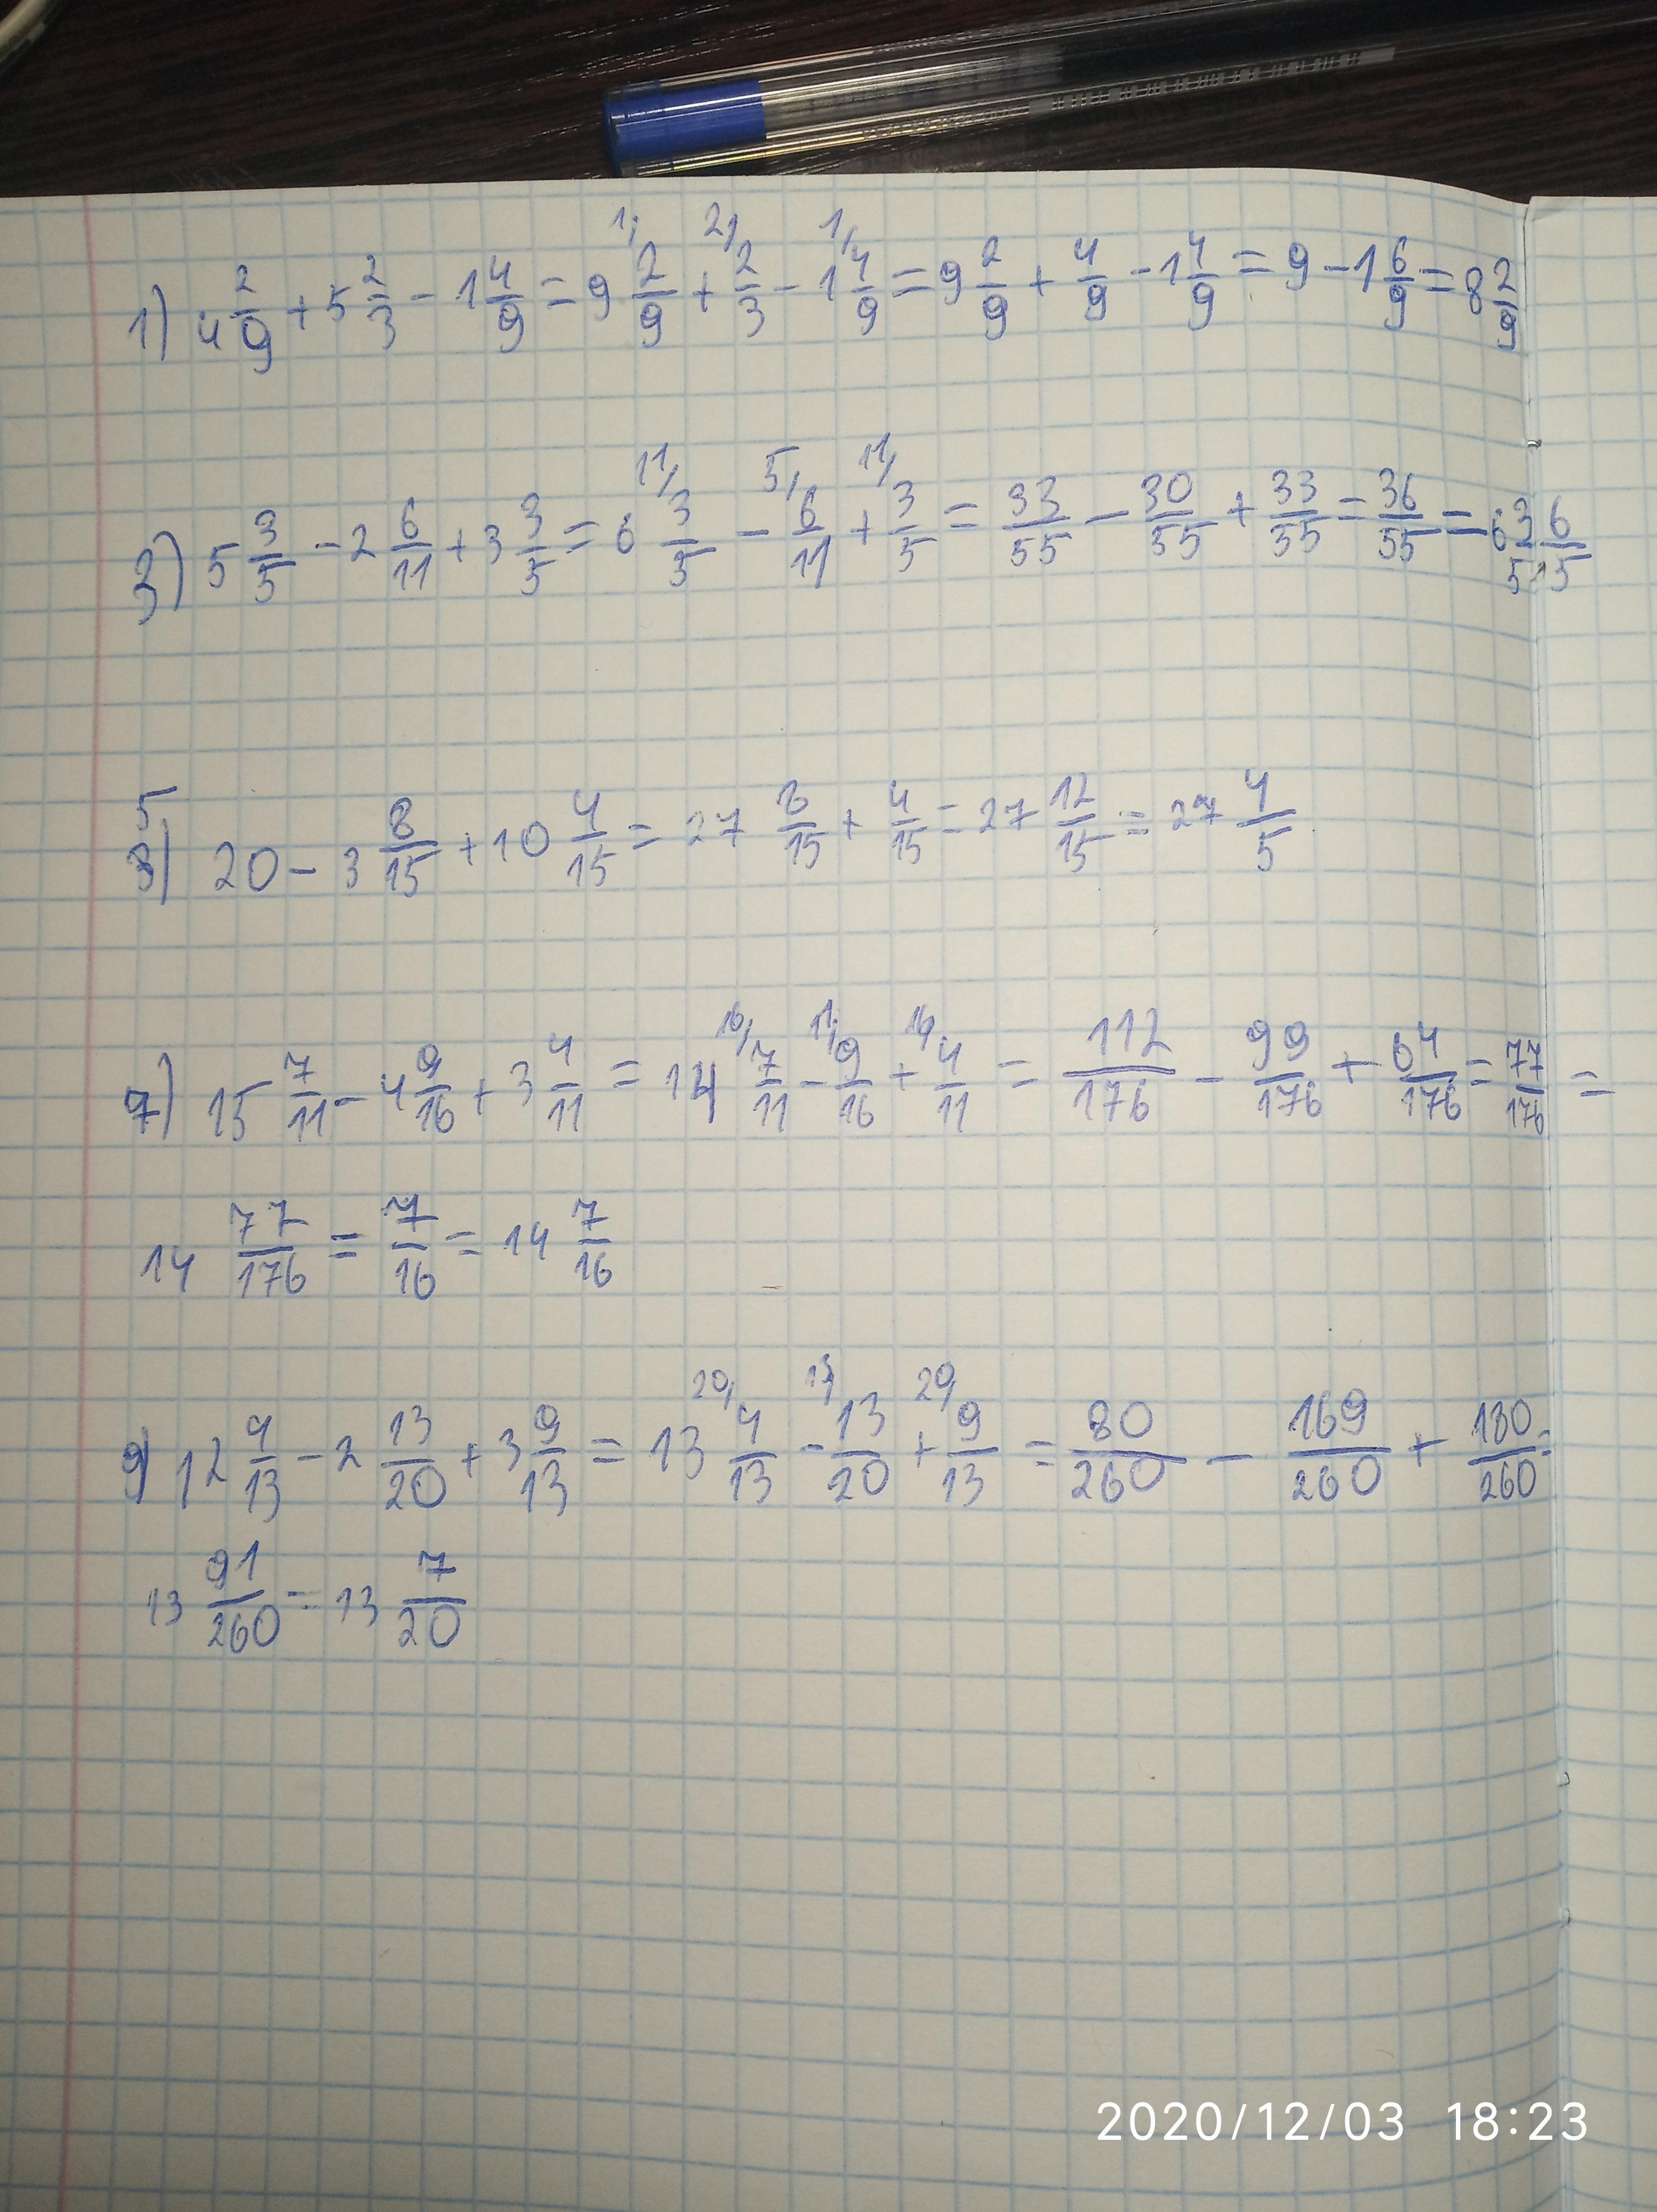 1) 4 2/9 + 5 2/3 - 1 4/9 = 9 1/ 2/9 + 2/ 2/3 - 1 1/ 4/9 = 9 2/9 + 4/9 - 1 4/9 = 9 - 1 6/9 = 8 2/9
3) 5 3/5 - 2 6/11 + 3 3/5 = 6 11/ 3/5 - 5/ 6/11 + 11/ 3/5 = 33/55 - 30/55 + 33/55 = 36/55 =
5) 20 - 3 8/15 + 10 4/15 = 27 8/15 + 4/15 = 27 12/15 = 27 4/5
7) 15 7/11 - 4 9/16 + 3 4/11 = 14 16/ 7/11 - 11/ 9/16 + 16/ 4/11 = 112/176 - 99/176 + 64/176 = 77/176 =
14 77/176 = 7/16 = 14 7/16
9) 12 4/13 - 2 13/20 + 3 9/13 = 13 20/ 4/13 - 13/ 13/20 + 20/ 9/13 = 80/260 - 169/260 + 180/260 =
13 91/260 = 13 7/20
2020/12/03 18:23